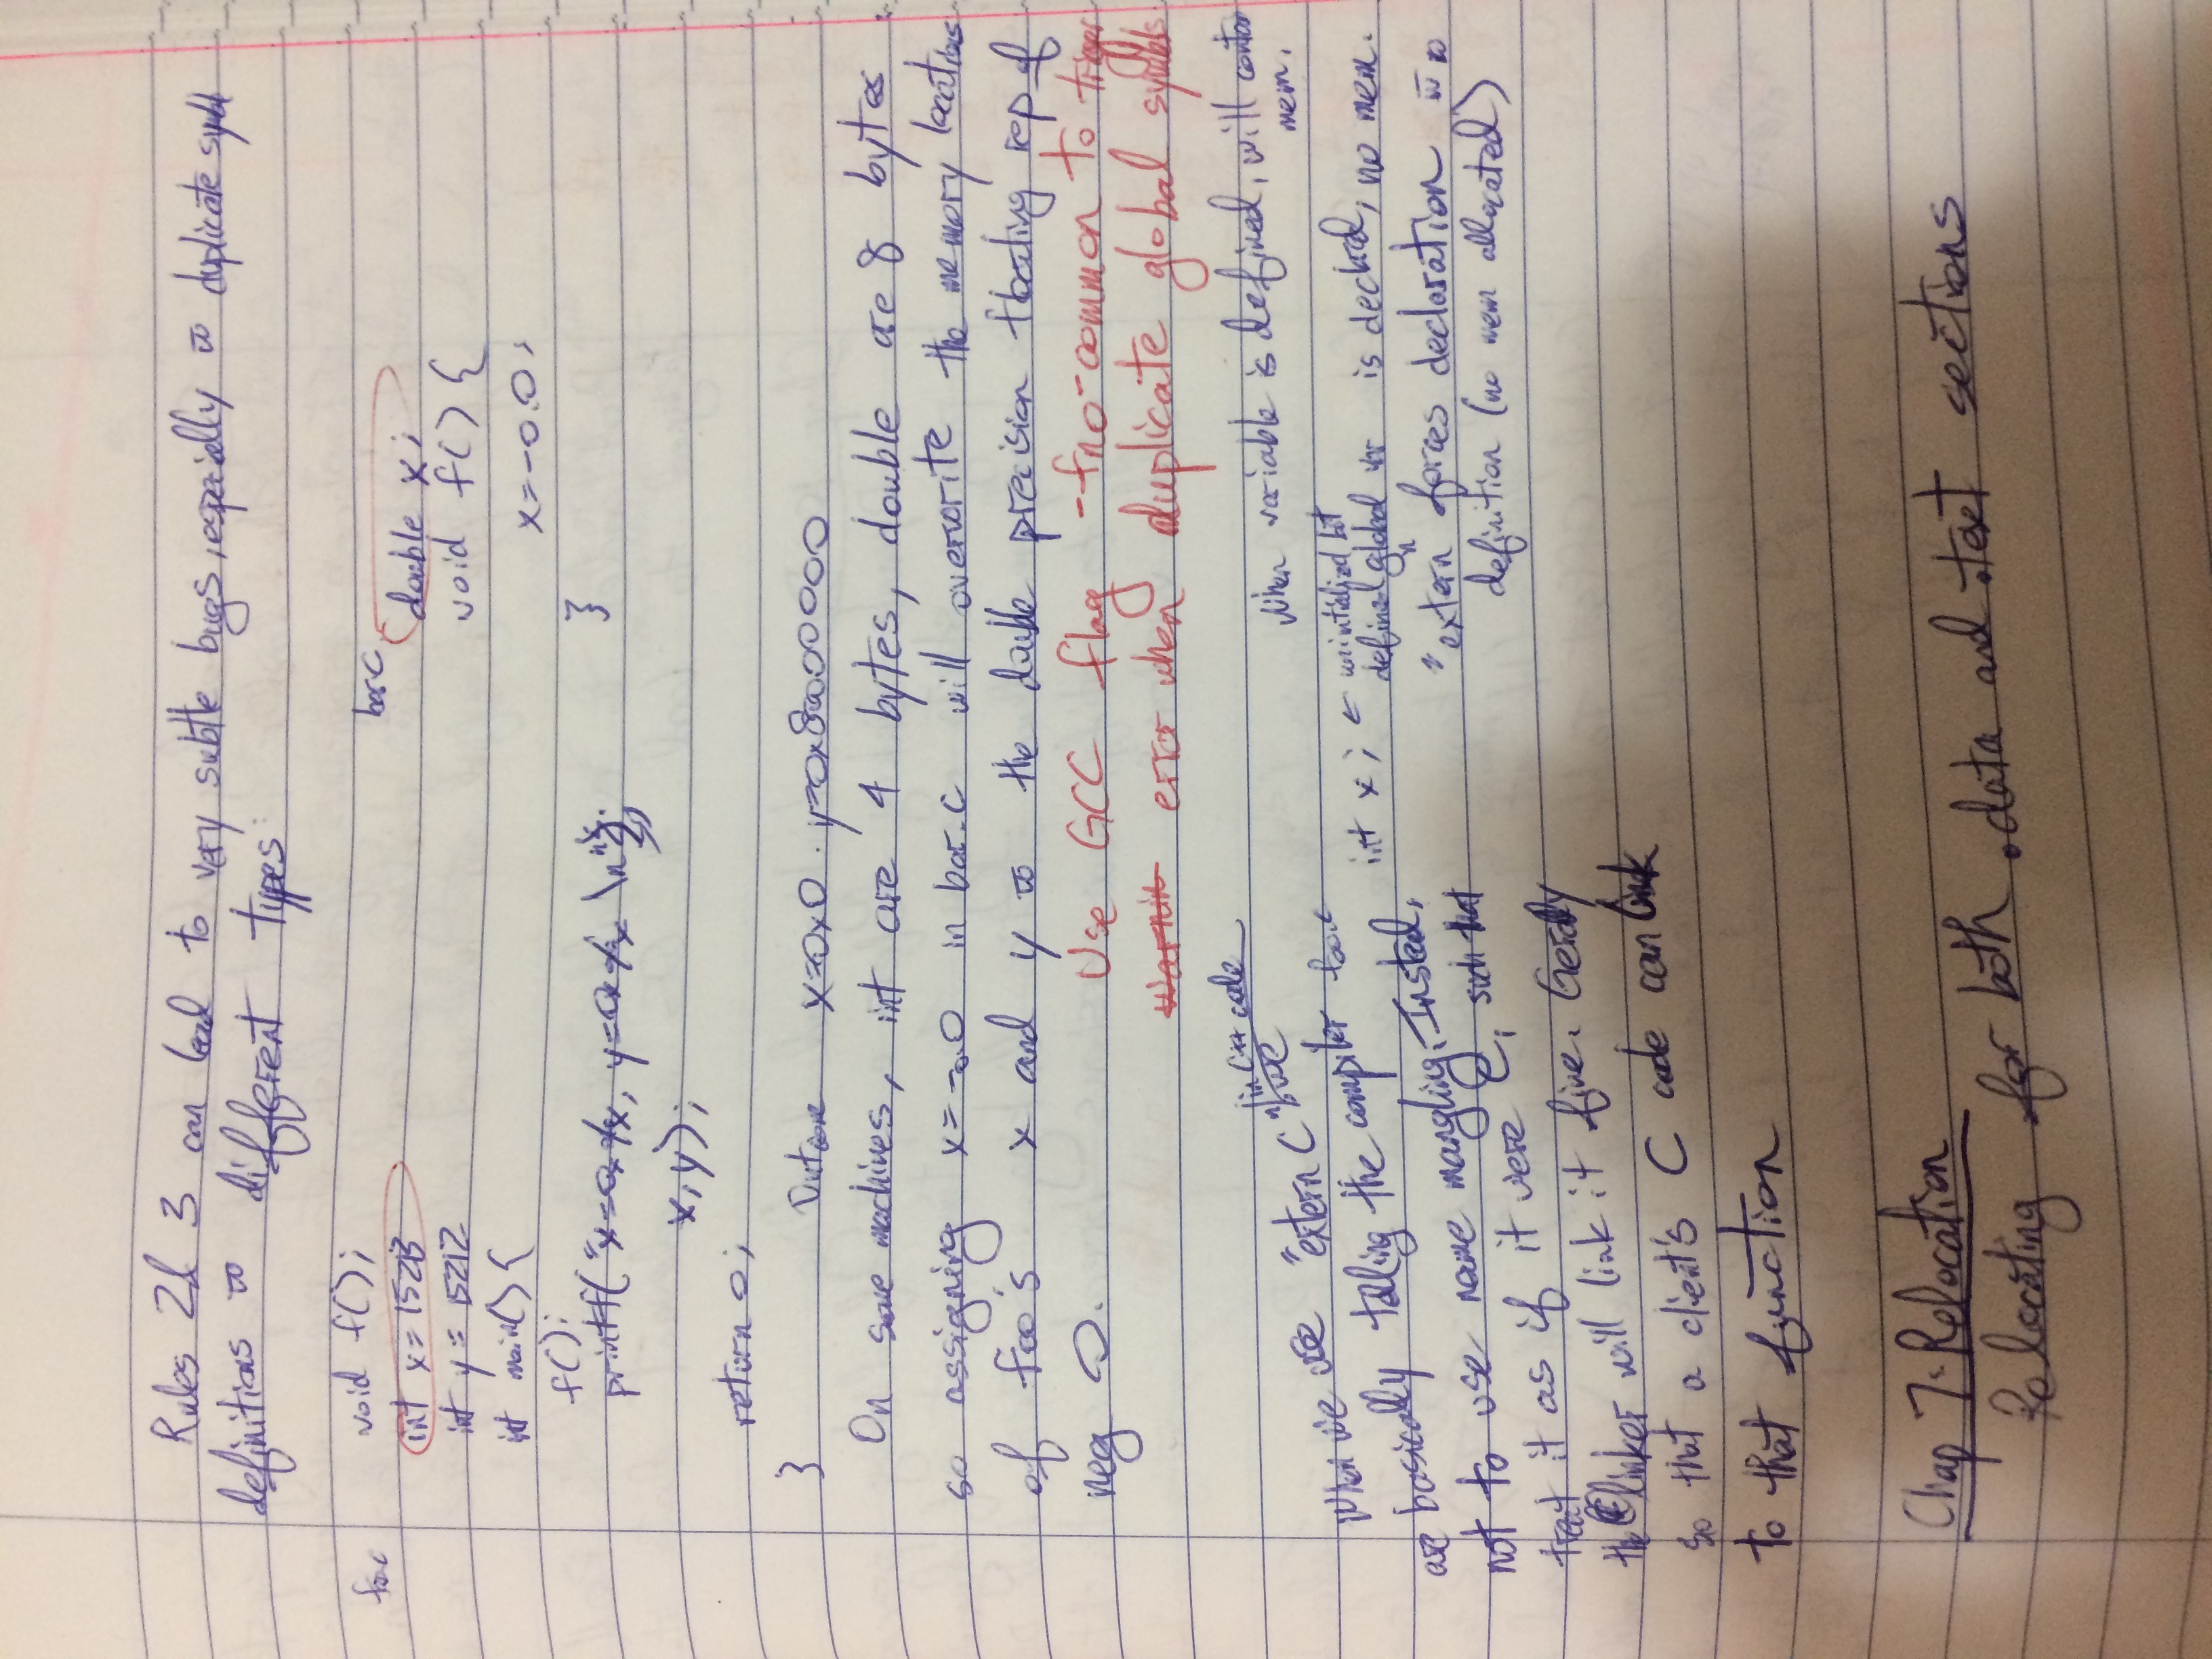 Rules 2 & 3 can lead to very subtle bugs, especially w duplicate symbl
definitions w different types
foo.c
void f();
int x = 15213
int y = 15212
int main() {
f();
printf("x=0x%x, y=0x%x \n",
x, y);
return 0;
}
bar.c
double x;
void f() {
x = -0.0;
}
Outcome x=0x0 . y=0x80000000
On some machines, int are 4 bytes, double are 8 bytes
so assigning x=-0.0 in bar.c will overwrite the memory locations
of foo's x and y w the double precision floating rep of
neg 0.
Use GCC flag -fno-common to trigger
warnin error when duplicate global symbols
When we use "extern C" in C++ code we
are basically telling the compiler
not to use name mangling. Instead,
treat it as if it were C, such that
the C linker will link it fine.
so that a client's C code can link
to that function
When variable is defined, will contain
mem.
foo.c
int x; ← uninitialized but
defined global var
is declared, no mem.
"extern" forces declaration w no
definition (no mem allocated)
Chap 7: Relocation
Relocating for both .data and .text sections